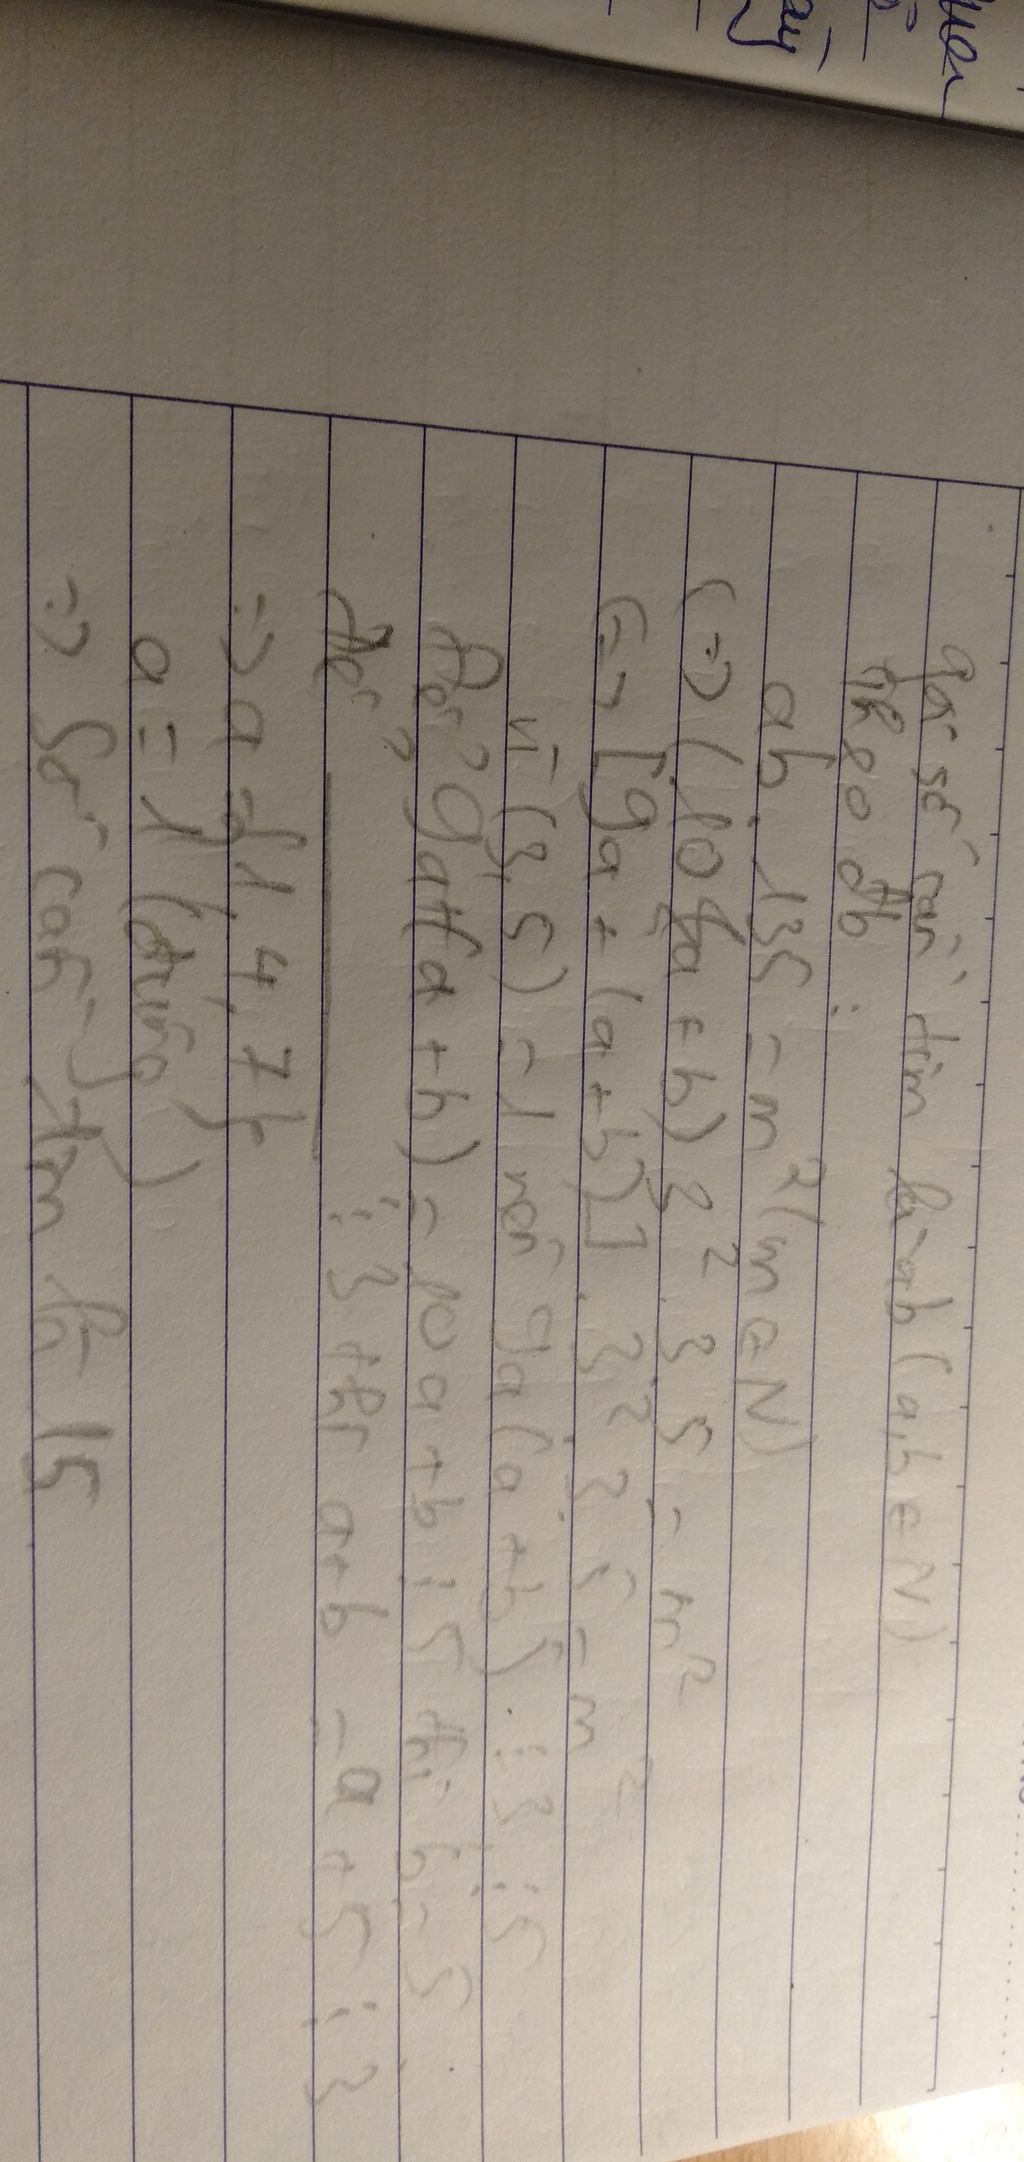 gọi số cần tìm là ab (a,b ∈ N)
theo đb :
ab . 135 = m² (m ∈ N)
<=> (10a + b) 3² . 3 5 = m²
<=> [9a + (a+b)] . 3² . 3 . 5 = m²
vì (3,5) = 1 nên 9a (a+b) ⋮ 3 ⋮ 5
Để 9a + (a + b) = 10a + b ⋮ 5 thì b = 5
Để ⋮ 3 thì a+b = a + 5 ⋮ 3
=> a = {1, 4, 7}
a = 1 (đúng)
=> Số cần tìm là 15